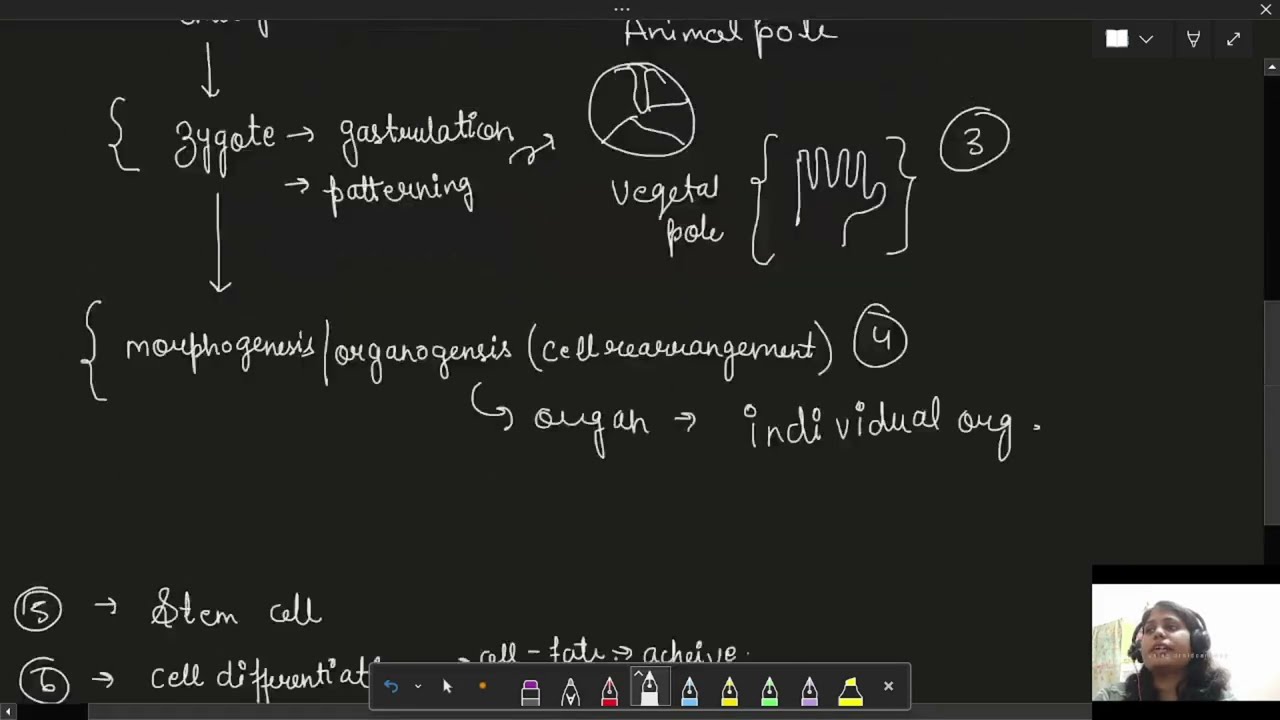 Animal pole
zygote → gastrulation
→ patterning
vegetal pole
3
morphogenesis/organogensis (cell rearrangement) 4
organ → individual org.
5 → Stem cell
6 → cell differentiat
cell-fate → acheive.